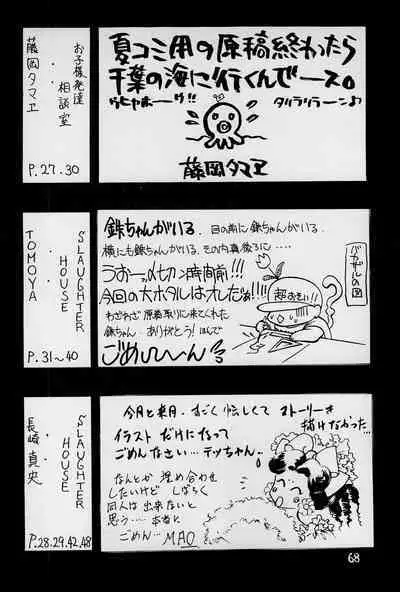 お子様発達
相談室
・・
藤岡タマヱ
P.27.30
夏コミ用の原稿終わったら
千葉の海に行くんでース。
ウヒャホーーゥ!!
タリラリラーーン♪
藤岡タマヱ
SLAUGHTER
HOUSE
・・
TOMOYA
P.31~40
鉄ちゃんがいる。目の前に鉄ちゃんがいる。
横にも鉄ちゃんがいる。その内真後ろに‥‥
うおーっ〆切2時間前!!!
今回の大ボケはオレだぁ!!!
わざわざ原稿取りに来てくれた
鉄ちゃん‥ありがとう!ほんで
ごめし〜〜ん
バカザルの図
超おもい!!
SLAUGHTER
HOUSE
・・
長崎真央
P.28.29.42.48
今月と来月、すごく忙しくてストーリーき
描けなかった…
イラストだけになって
ごめんなさい…テッちゃん。
なんとか埋め合わせ
したいけどしばらく
同人は出来ないと
思う‥‥本当に
ごめん… MAO
68